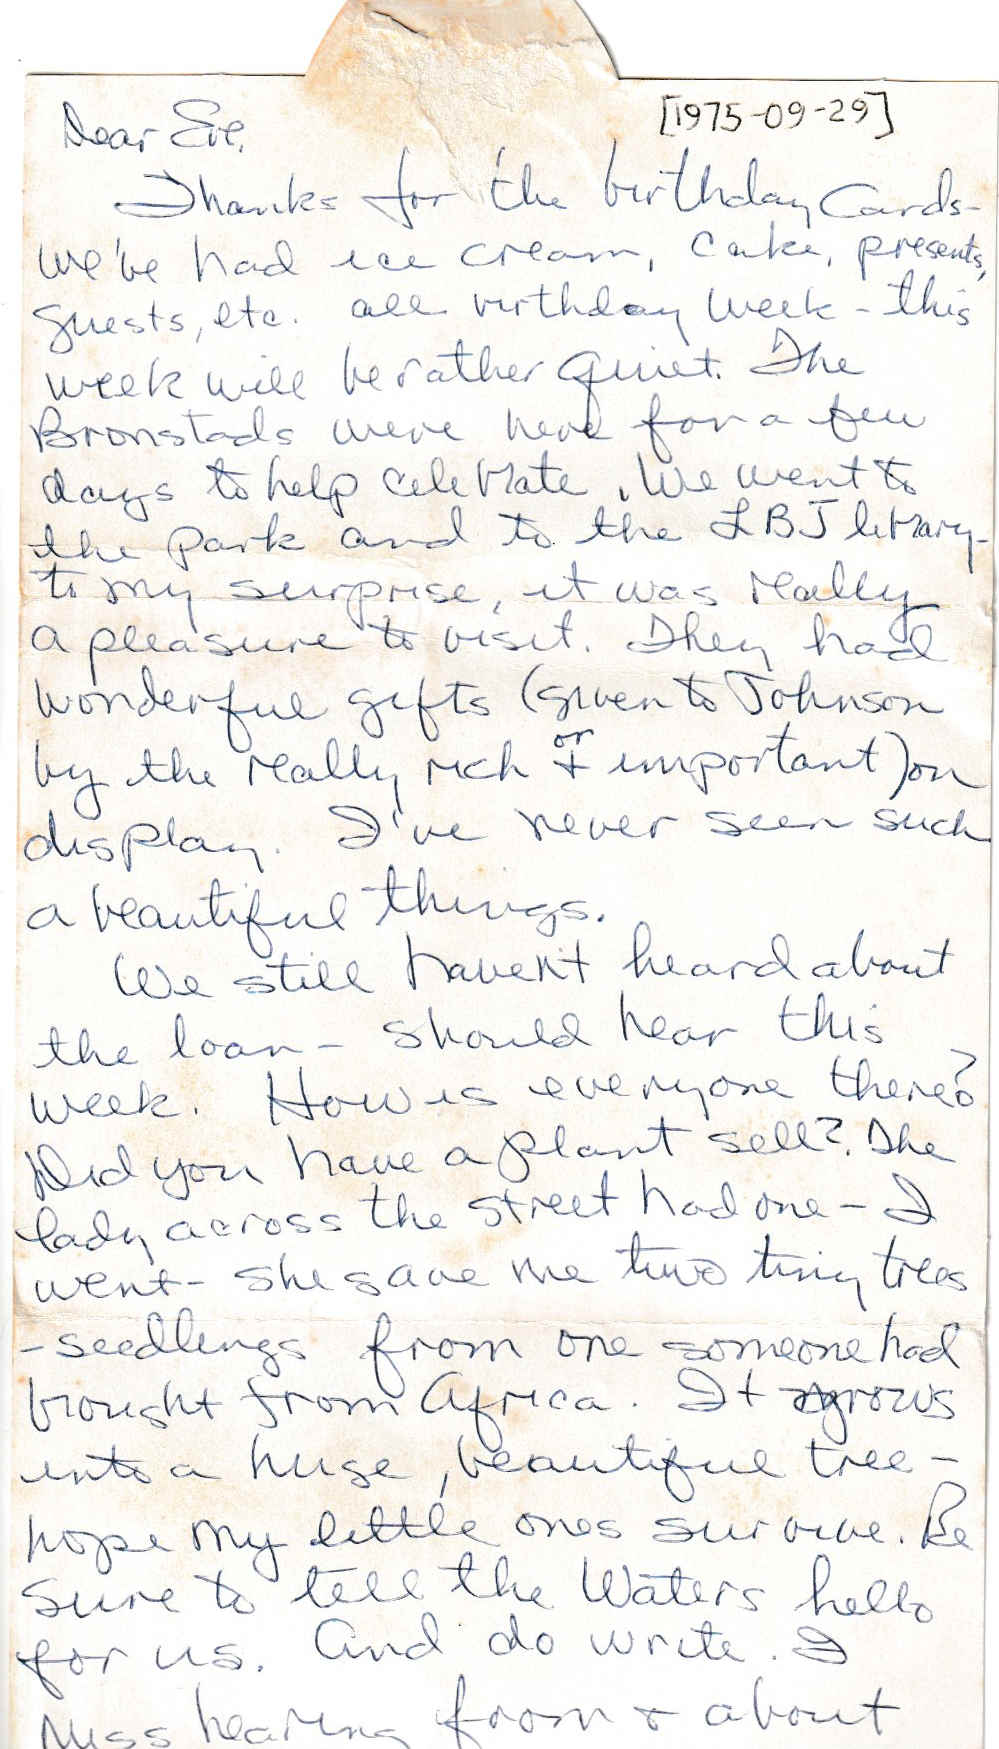 [1975-09-29]
Dear Eve,
Thanks for the birthday Cards-
We've had ice cream, cake, presents,
guests, etc. all birthday week - this
week will be rather quiet. The
Bronstads were here for a few
days to help celebrate. We went to
the park and to the LBJ library-
to my surprise, it was really
a pleasure to visit. They had
wonderful gifts (given to Johnson
by the really rich or + important) on
display. I've never seen such
a beautiful things.
We still haven't heard about
the loan - should hear this
week. How is everyone there?
Did you have a plant sell? The
lady across the street had one - I
went - she gave me two tiny trees
- seedlings from one someone had
brought from Africa. It grows
into a huge, beautiful tree -
hope my little ones survive. Be
sure to tell the Waters hello
for us. And do write. I
Miss hearing from + about